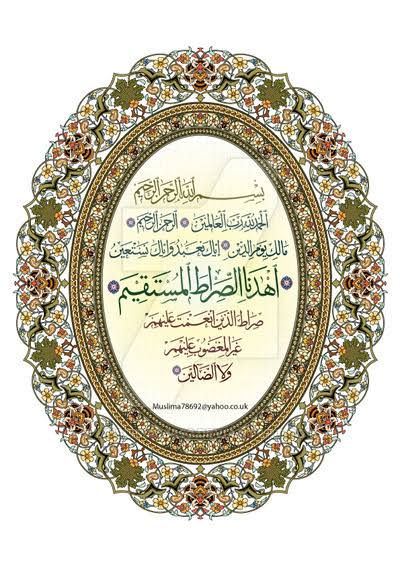 بسم الله الرحمن الرحيم
الحمد لله رب العالمين الرحمن الرحيم
مالك يوم الدين اياك نعبد واياك نستعين
أهدنا الصراط المستقيم
صراط الذين انعمت عليهم
غير المغضوب عليهم
ولا الضالين
Muslima78692@yahoo.co.uk